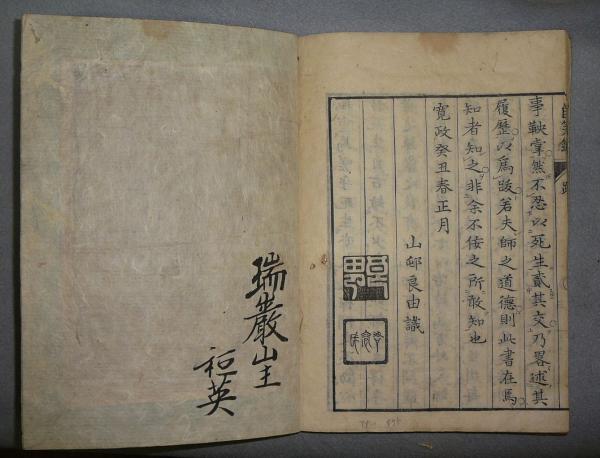 事鞅掌然不忍以死生貳其交乃畧述其
履歷以爲跋若夫師之道德則此書在焉
知者知之非余不佞之所敢知也
寛政癸丑春正月
山邨良由識
瑞巖山主